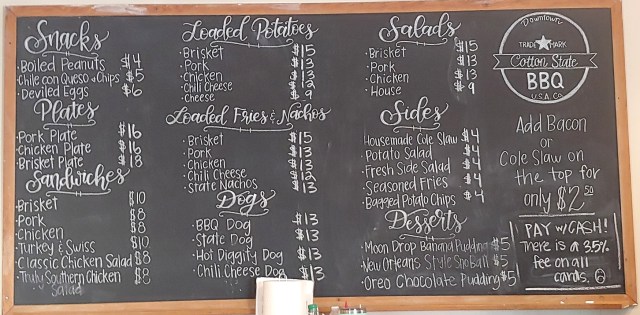 Snacks
Boiled Peanuts $4
Chile con Queso & Chips $5
Deviled Eggs $6
Plates
Pork Plate $16
Chicken Plate $16
Brisket Plate $18
Sandwiches
Brisket $10
Pork $8
Chicken $8
Turkey & Swiss $10
Classic Chicken Salad $8
Truly Southern Chicken Salad $8
Loaded Potatoes
Brisket $15
Pork $13
Chicken $13
Chili Cheese $12
Cheese $9
Loaded Fries & Nachos
Brisket $15
Pork $13
Chicken $13
Chili Cheese $12
State Nachos $13
Dogs
BBQ Dog $13
State Dog $13
Hot Diggity Dog $13
Chili Cheese Dog $13
Salads
Brisket $15
Pork $13
Chicken $13
House $9
Sides
Housemade Cole Slaw $4
Potato Salad $4
Fresh Side Salad $4
Seasoned Fries $4
Bagged Potato Chips $4
Desserts
Moon Drop Banana Pudding $5
New Orleans Style SnoBall $5
Oreo Chocolate Pudding $5
Downtown
TRADE MARK
Cotton State
BBQ
U.S.A. CO.
Add Bacon
or
Cole Slaw on
the top for
only $2.50
PAY w/CASH!
There is a 3.5%
fee on all
cards.